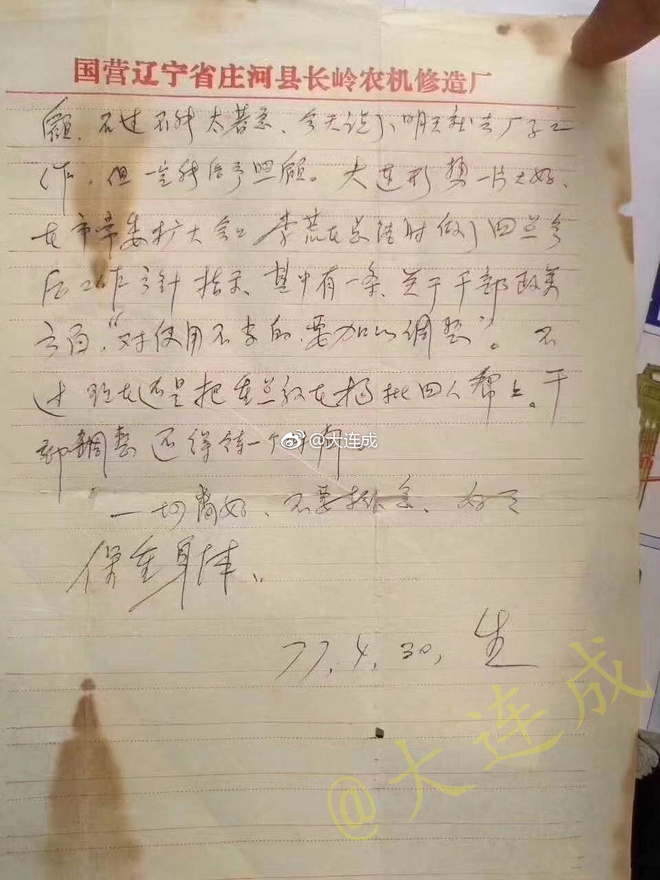 国营辽宁省庄河县长岭农机修造厂
顾，不过不能太着急，今天谈了，明天就去厂子工
作，但一定能给予照顾。大连形势一片大好，
在市常委扩大会上李荒在总结时做了四点今
后工作方针指示，其中有一条，关于干部政策
方面，“对使用不当的，要加以调整”。不
过现在还是把重点放在揭批四人帮上。干
部调整还得等一个时间。
@大连成
一切都好，不要挂念，好好
保重身体。
77.4.30，生
@大连成